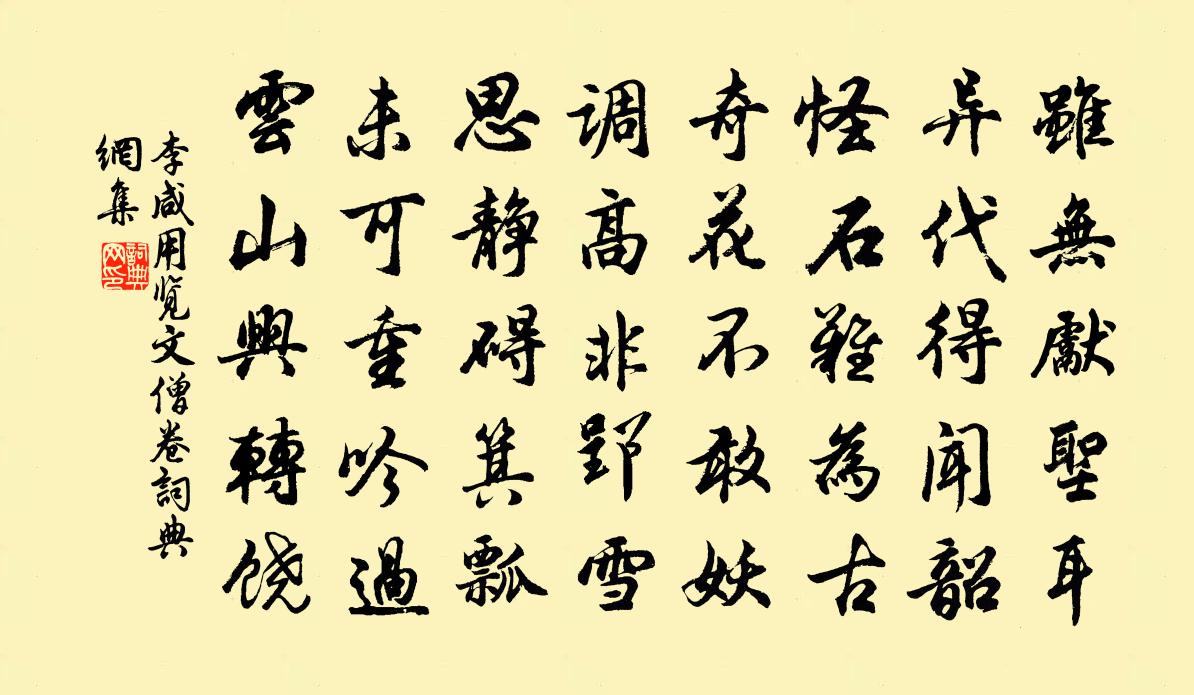 雖無獻聖耳
异代得闻韶
怪石難為古
奇花不敢妖
调高非郢雪
思静碍箕瓢
未可重吟過
雲山興轉饶
李咸用览文僧卷詞典
網集
詞典
网印